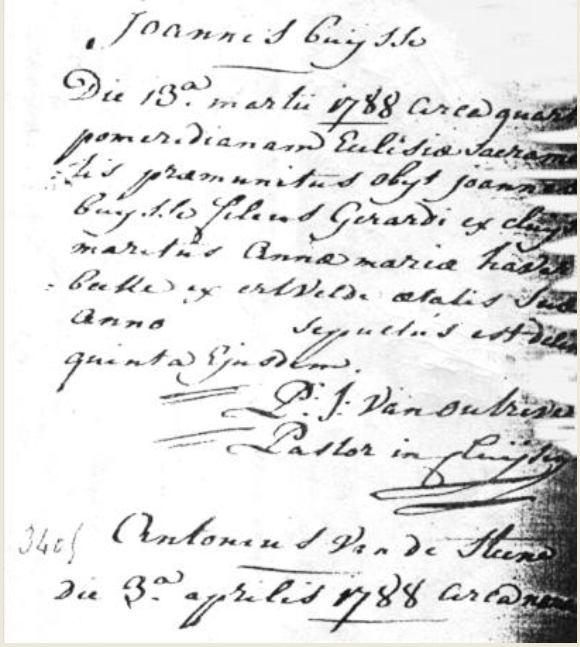 Joannes Buysse
Die 13.ª martii 1788 circa quart
pomeridianam Eclisiæ Sacrame
tis præmunitus obyt joannes
buysse filius Gerardi ex cluys
maritus Annæ mariæ haver
beke ex ertvelde ætatis suæ
anno sepultus est
quinta Ejusdem.
P: J: Van outrive
Pastor in Cluijsen
3405 Antonius Van de Steene
die 3.ª aprilis 1788 circa